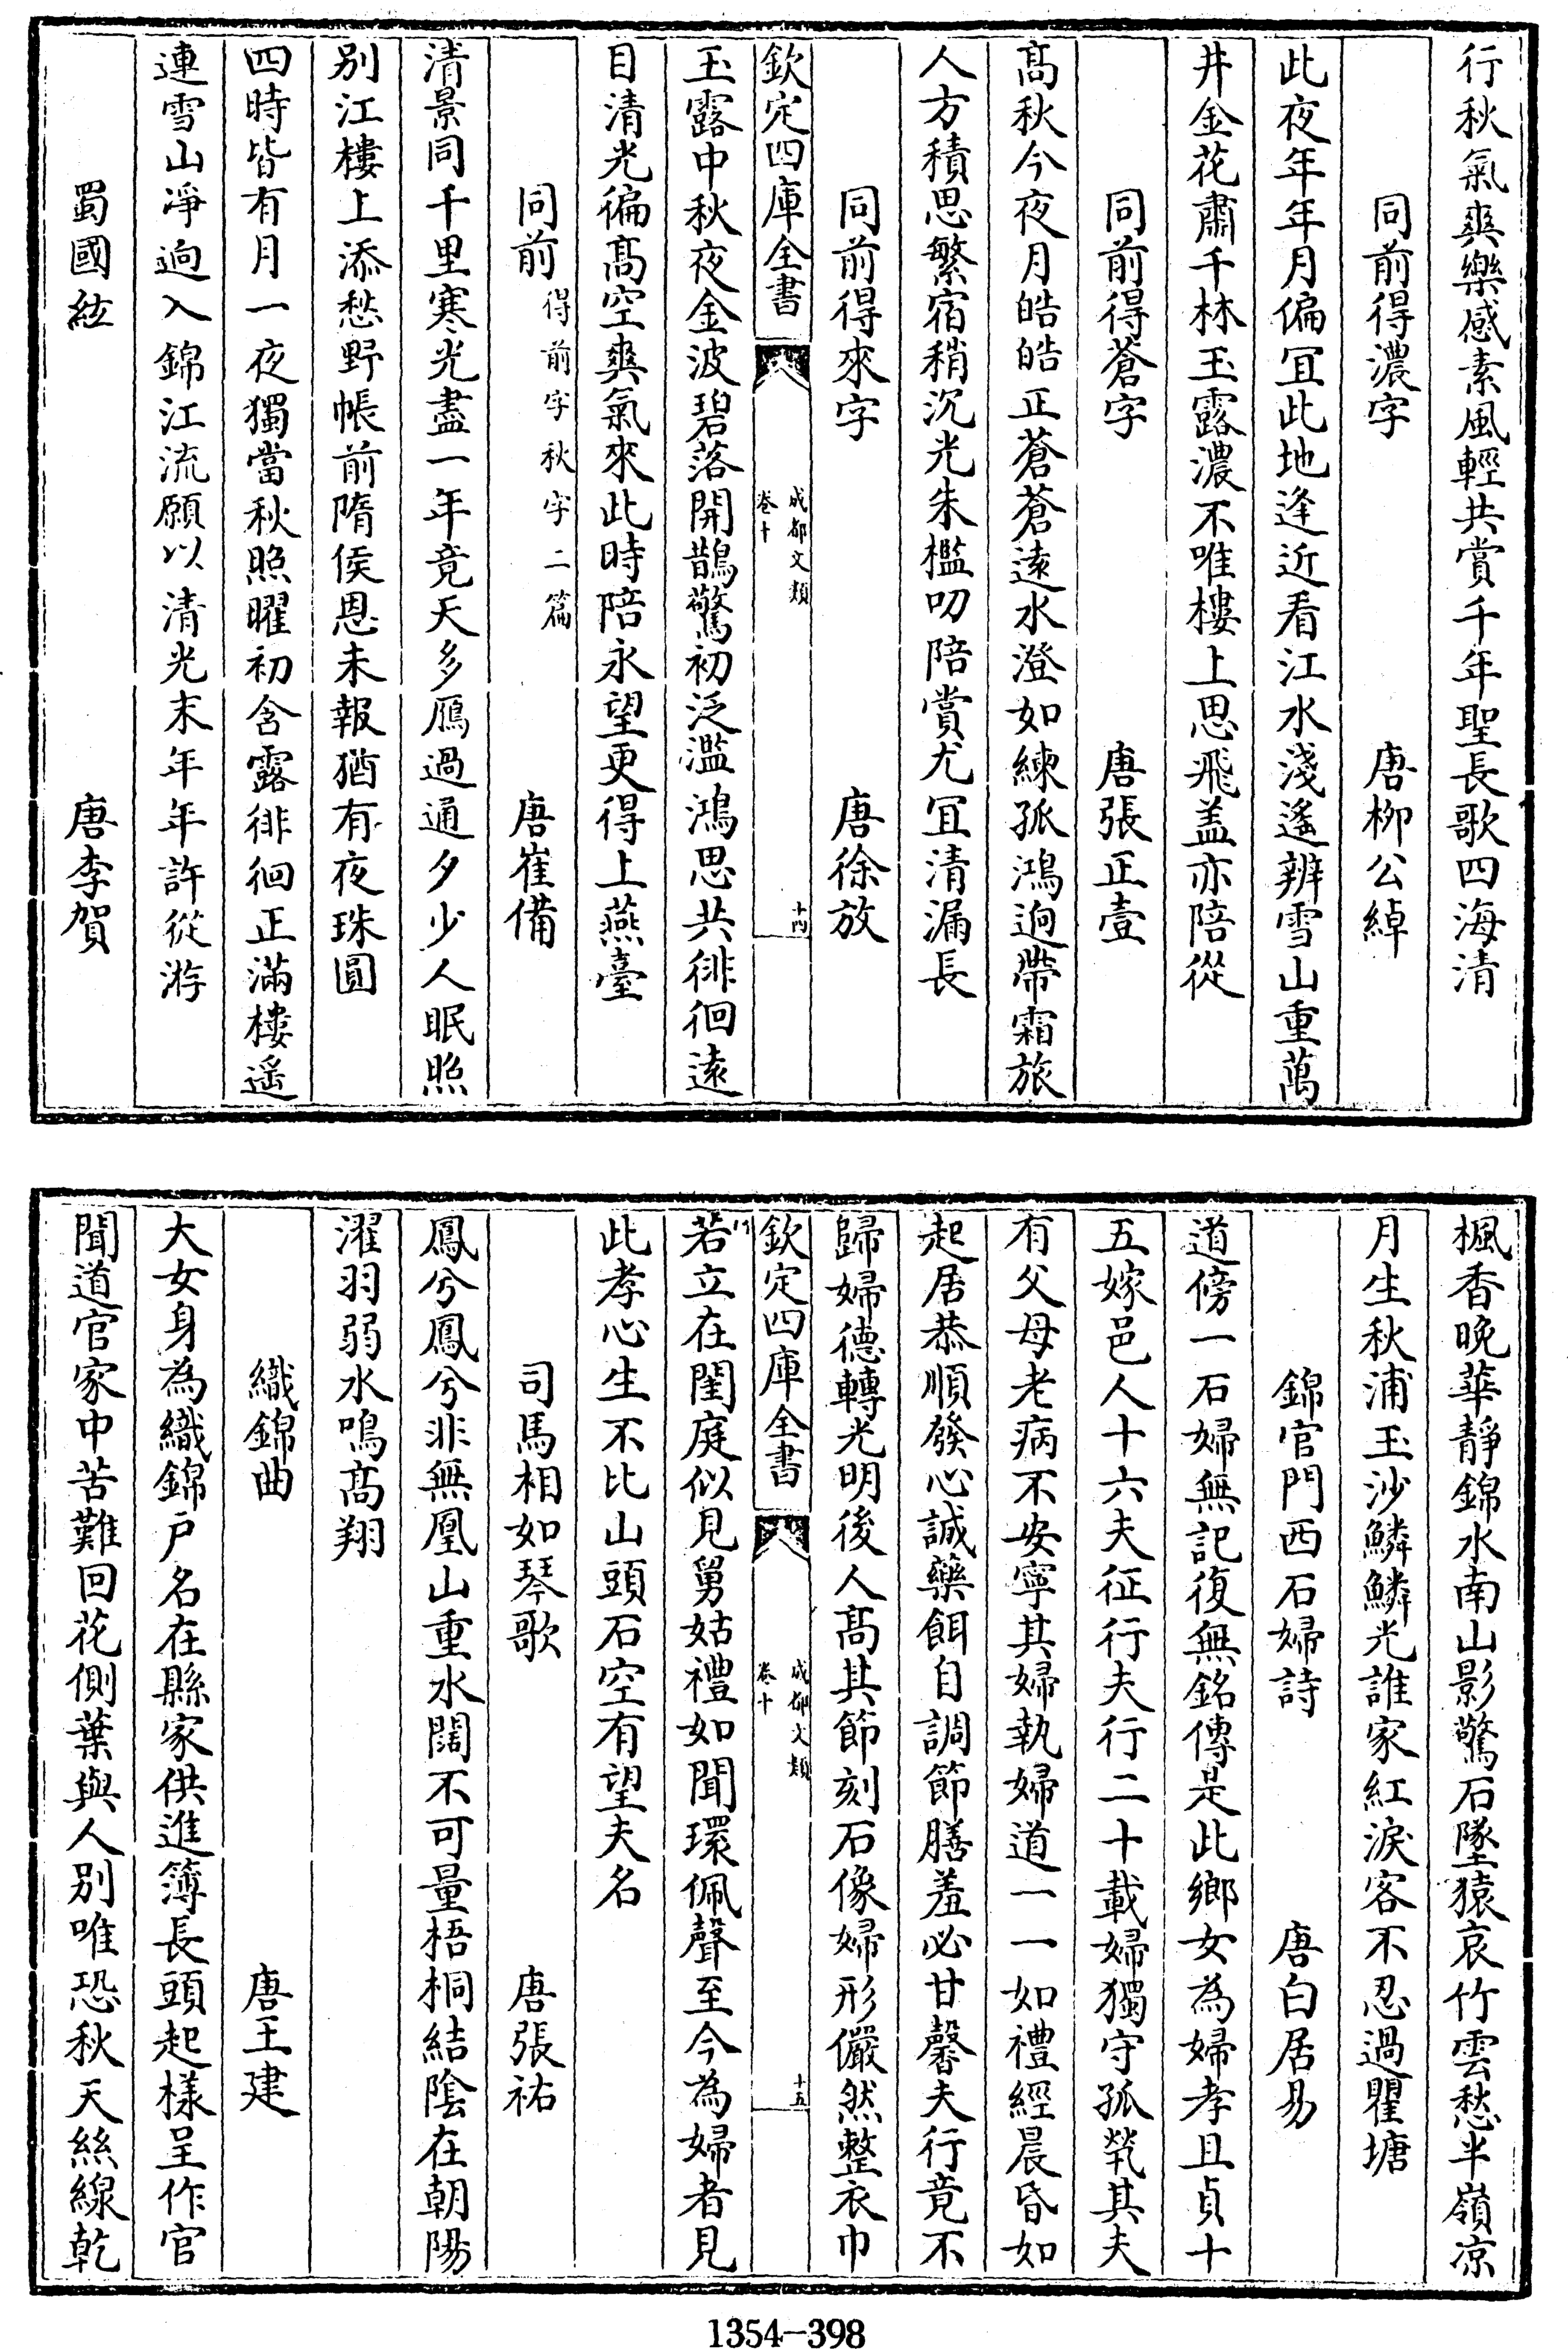 行秋氣爽樂感素風輕共賞千年聖長歌四海清
同前得濃字　唐柳公綽
此夜年年月偏宜此地逢近看江水淺遙辨雪山重萬
井金花肅千林玉露濃不唯樓上思飛盖亦陪從
同前得蒼字　唐張正壹
髙秋今夜月皓皓正蒼蒼遠水澄如練孤鴻逈帶霜旅
人方積思繁宿稍沉光朱檻叨陪賞尤宜清漏長
同前得來字　唐徐放
欽定四庫全書　成都文類　卷十　十四
玉露中秋夜金波碧落開鵲驚初泛濫鴻思共徘徊遠
目清光徧髙空爽氣來此時陪永望更得上燕臺
同前得前字秋字二篇　唐崔備
清景同千里寒光盡一年竟天多鴈過通夕少人眠照
别江樓上添愁野帳前隋侯恩未報猶有夜珠圓
四時皆有月一夜獨當秋照曜初含露徘徊正滿樓遥
連雪山淨逈入錦江流願以清光末年年許從游
蜀國絃　唐李賀
楓香晚華靜錦水南山影驚石墜猿哀竹雲愁半嶺凉
月生秋浦玉沙鱗鱗光誰家紅淚客不忍過瞿塘
錦官門西石婦詩　唐白居易
道傍一石婦無記復無銘傳是此鄉女為婦孝且貞十
五嫁邑人十六夫征行夫行二十載婦獨守孤煢其夫
有父母老病不安寧其婦執婦道一一如禮經晨昏如
起居恭順發心誠藥餌自調節膳羞必甘馨夫行竟不
歸婦德轉光明後人髙其節刻石像婦形儼然整衣巾
欽定四庫全書　成都文類　卷十　十五
若立在閨庭似見舅姑禮如聞環佩聲至今為婦者見
此孝心生不比山頭石空有望夫名
司馬相如琴歌　唐張祐
鳳兮鳳兮非無凰山重水闊不可量梧桐結陰在朝陽
濯羽弱水鳴髙翔
織錦曲　唐王建
大女身為織錦户名在縣家供進簿長頭起樣呈作官
聞道官家中苦難回花側葉與人别唯恐秋天絲線乾
1354-398